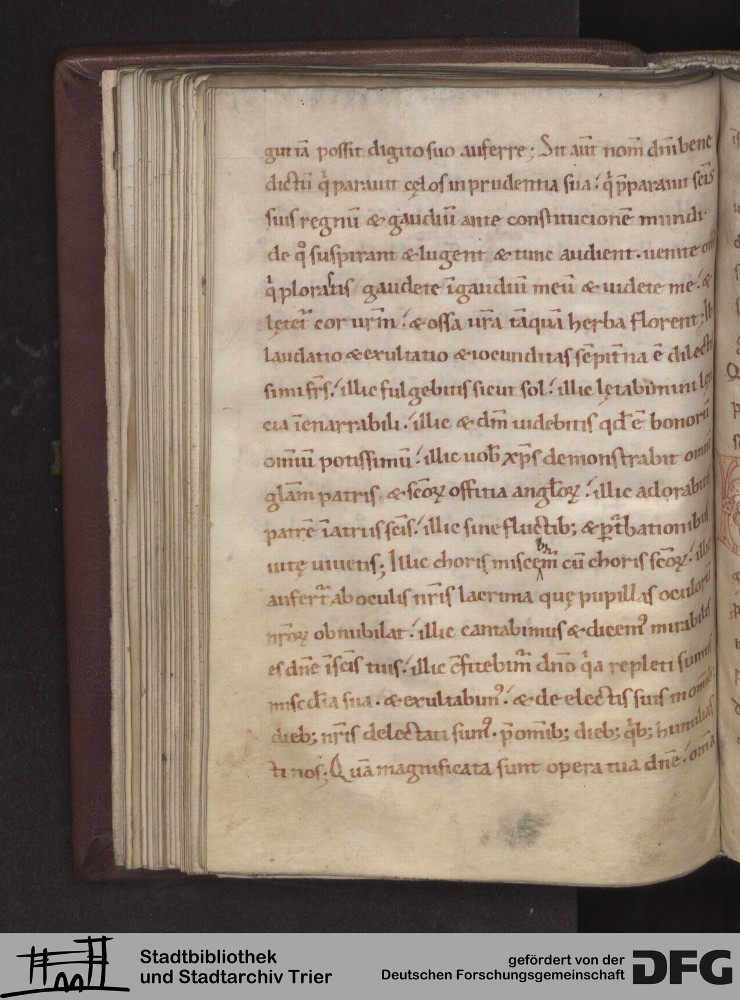 gut iā possit digito suo auferre; Sit aūt nom̄ dn̄i bene
dictū q̇ parauit cęlos in prudentia sua. q̇ p̄parauit sc̄is
suis regnū & gaudiū ante constitucionē mundi.
de q̊ suspirant & lugent & tunc audient. uenite om̄
q̇ plorastis gaudete īgaudiū meū & uidete me. &
lętet̄ cor ur̄m. & ossa ur̄a tāquā herba florent;
laudatio & exultatio & iocunditas sēpit̄na ē dilecti
simi fr̄s. illic fulgebitis sicut sol. illic lętabimini lęti
cia īenarrabili. illic & dm̄ uidebitis qd̄ ē bonorū
omiū potissimū. illic uob̄ xp̄s demonstrabit omnē
glām patris & sc̄oꝝ offitia angl̄oꝝ. illic adorabimꝰ
patrē ī atriis sc̄is. illic sine fluctib; & ꝑt̄bationibus
uitę uiuetis; Illic choris miscem̄ cū choris sc̄oꝝ. illic
aufert̄ ab oculis nr̄is lacrima quę pupillas oculorū
nr̄oꝝ obnubilat. illic cantabimus & dicemꝰ mirabilis
es dn̄e ī sc̄is tuis. illic c̄fitebim̄ dn̄o q̇a repleti sumus
misc̄dia sua. & exultabimꝰ. & de electis suis in omib;
dieb; nr̄is delectati sumꝰ. p̄ omīb; dieb; q̇b; humilias
ti nos; Quā magnificata sunt opera tua dn̄e. om̄a
Stadtbibliothek
und Stadtarchiv Trier
gefördert von der
Deutschen Forschungsgemeinschaft
DFG